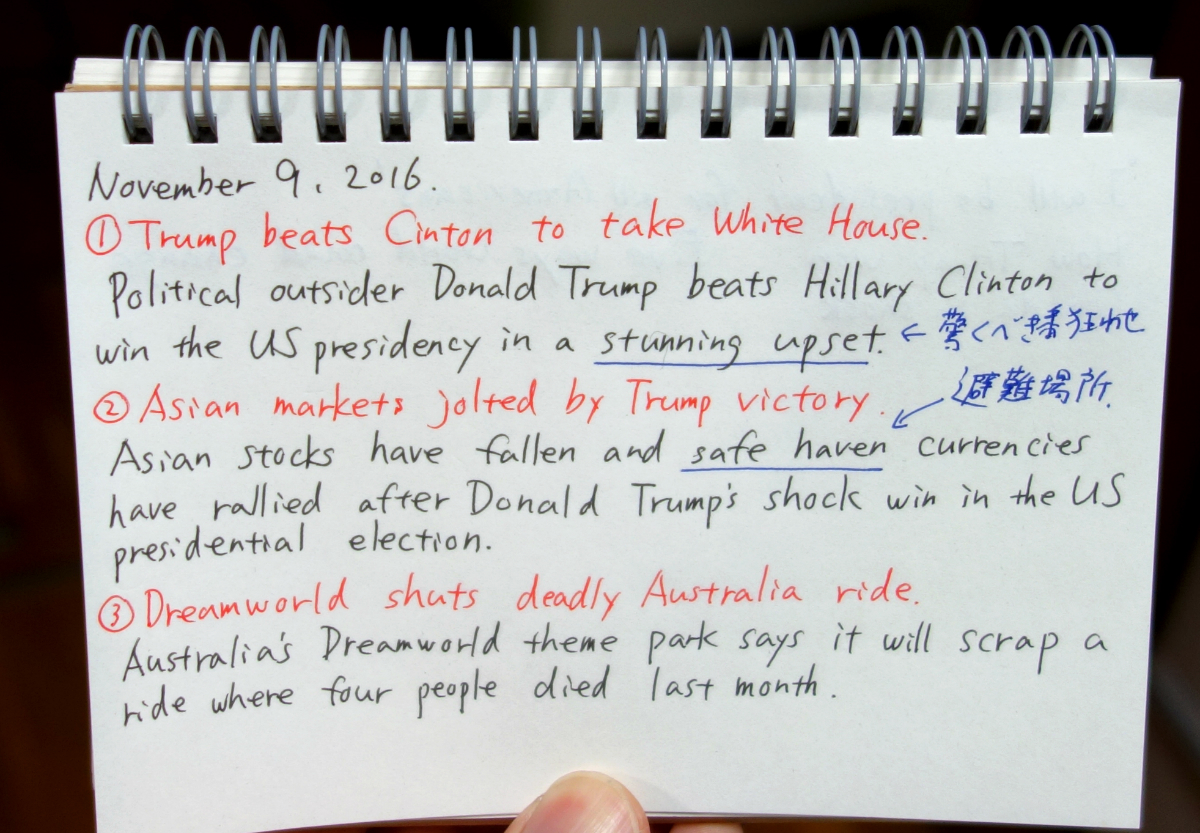 November 9, 2016.
① Trump beats Cinton to take White House.
Political outsider Donald Trump beats Hillary Clinton to
win the US presidency in a stunning upset. ← 驚くべき番狂わせ
② Asian markets jolted by Trump victory. 避難場所.
Asian stocks have fallen and safe haven currencies
have rallied after Donald Trump's shock win in the US
presidential election.
③ Dreamworld shuts deadly Australia ride.
Australia's Dreamworld theme park says it will scrap a
ride where four people died last month.